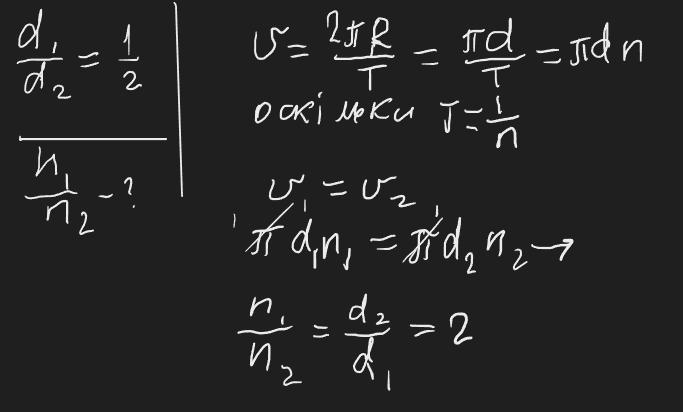 d₁/d₂ = 1/2
n₁/n₂ - ?
υ = 2πR/T = πd/T = πdn
оскільки T = 1/n
υ₁ = υ₂
πd₁n₁ = πd₂n₂ →
n₁/n₂ = d₂/d₁ = 2